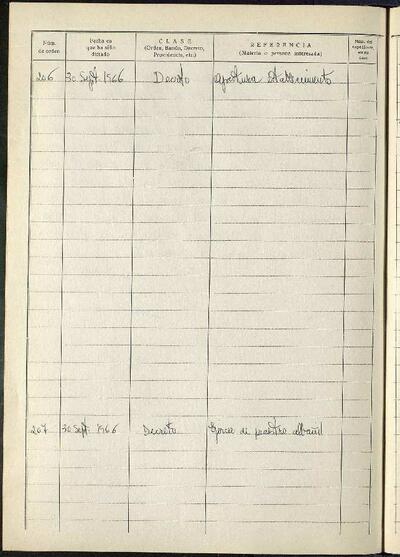 Núm. de orden | Fecha en que ha sido dictado | CLASE (Orden, Bando, Decreto, Providencia, etc.) | REFERENCIA (Materia o persona interesada) | Núm. del expediente en su caso
206 | 30 Sept. 1966 | Decreto | Apertura Establecimiento
207 | 30 Sept. 1966 | Decreto | de maestro albañil